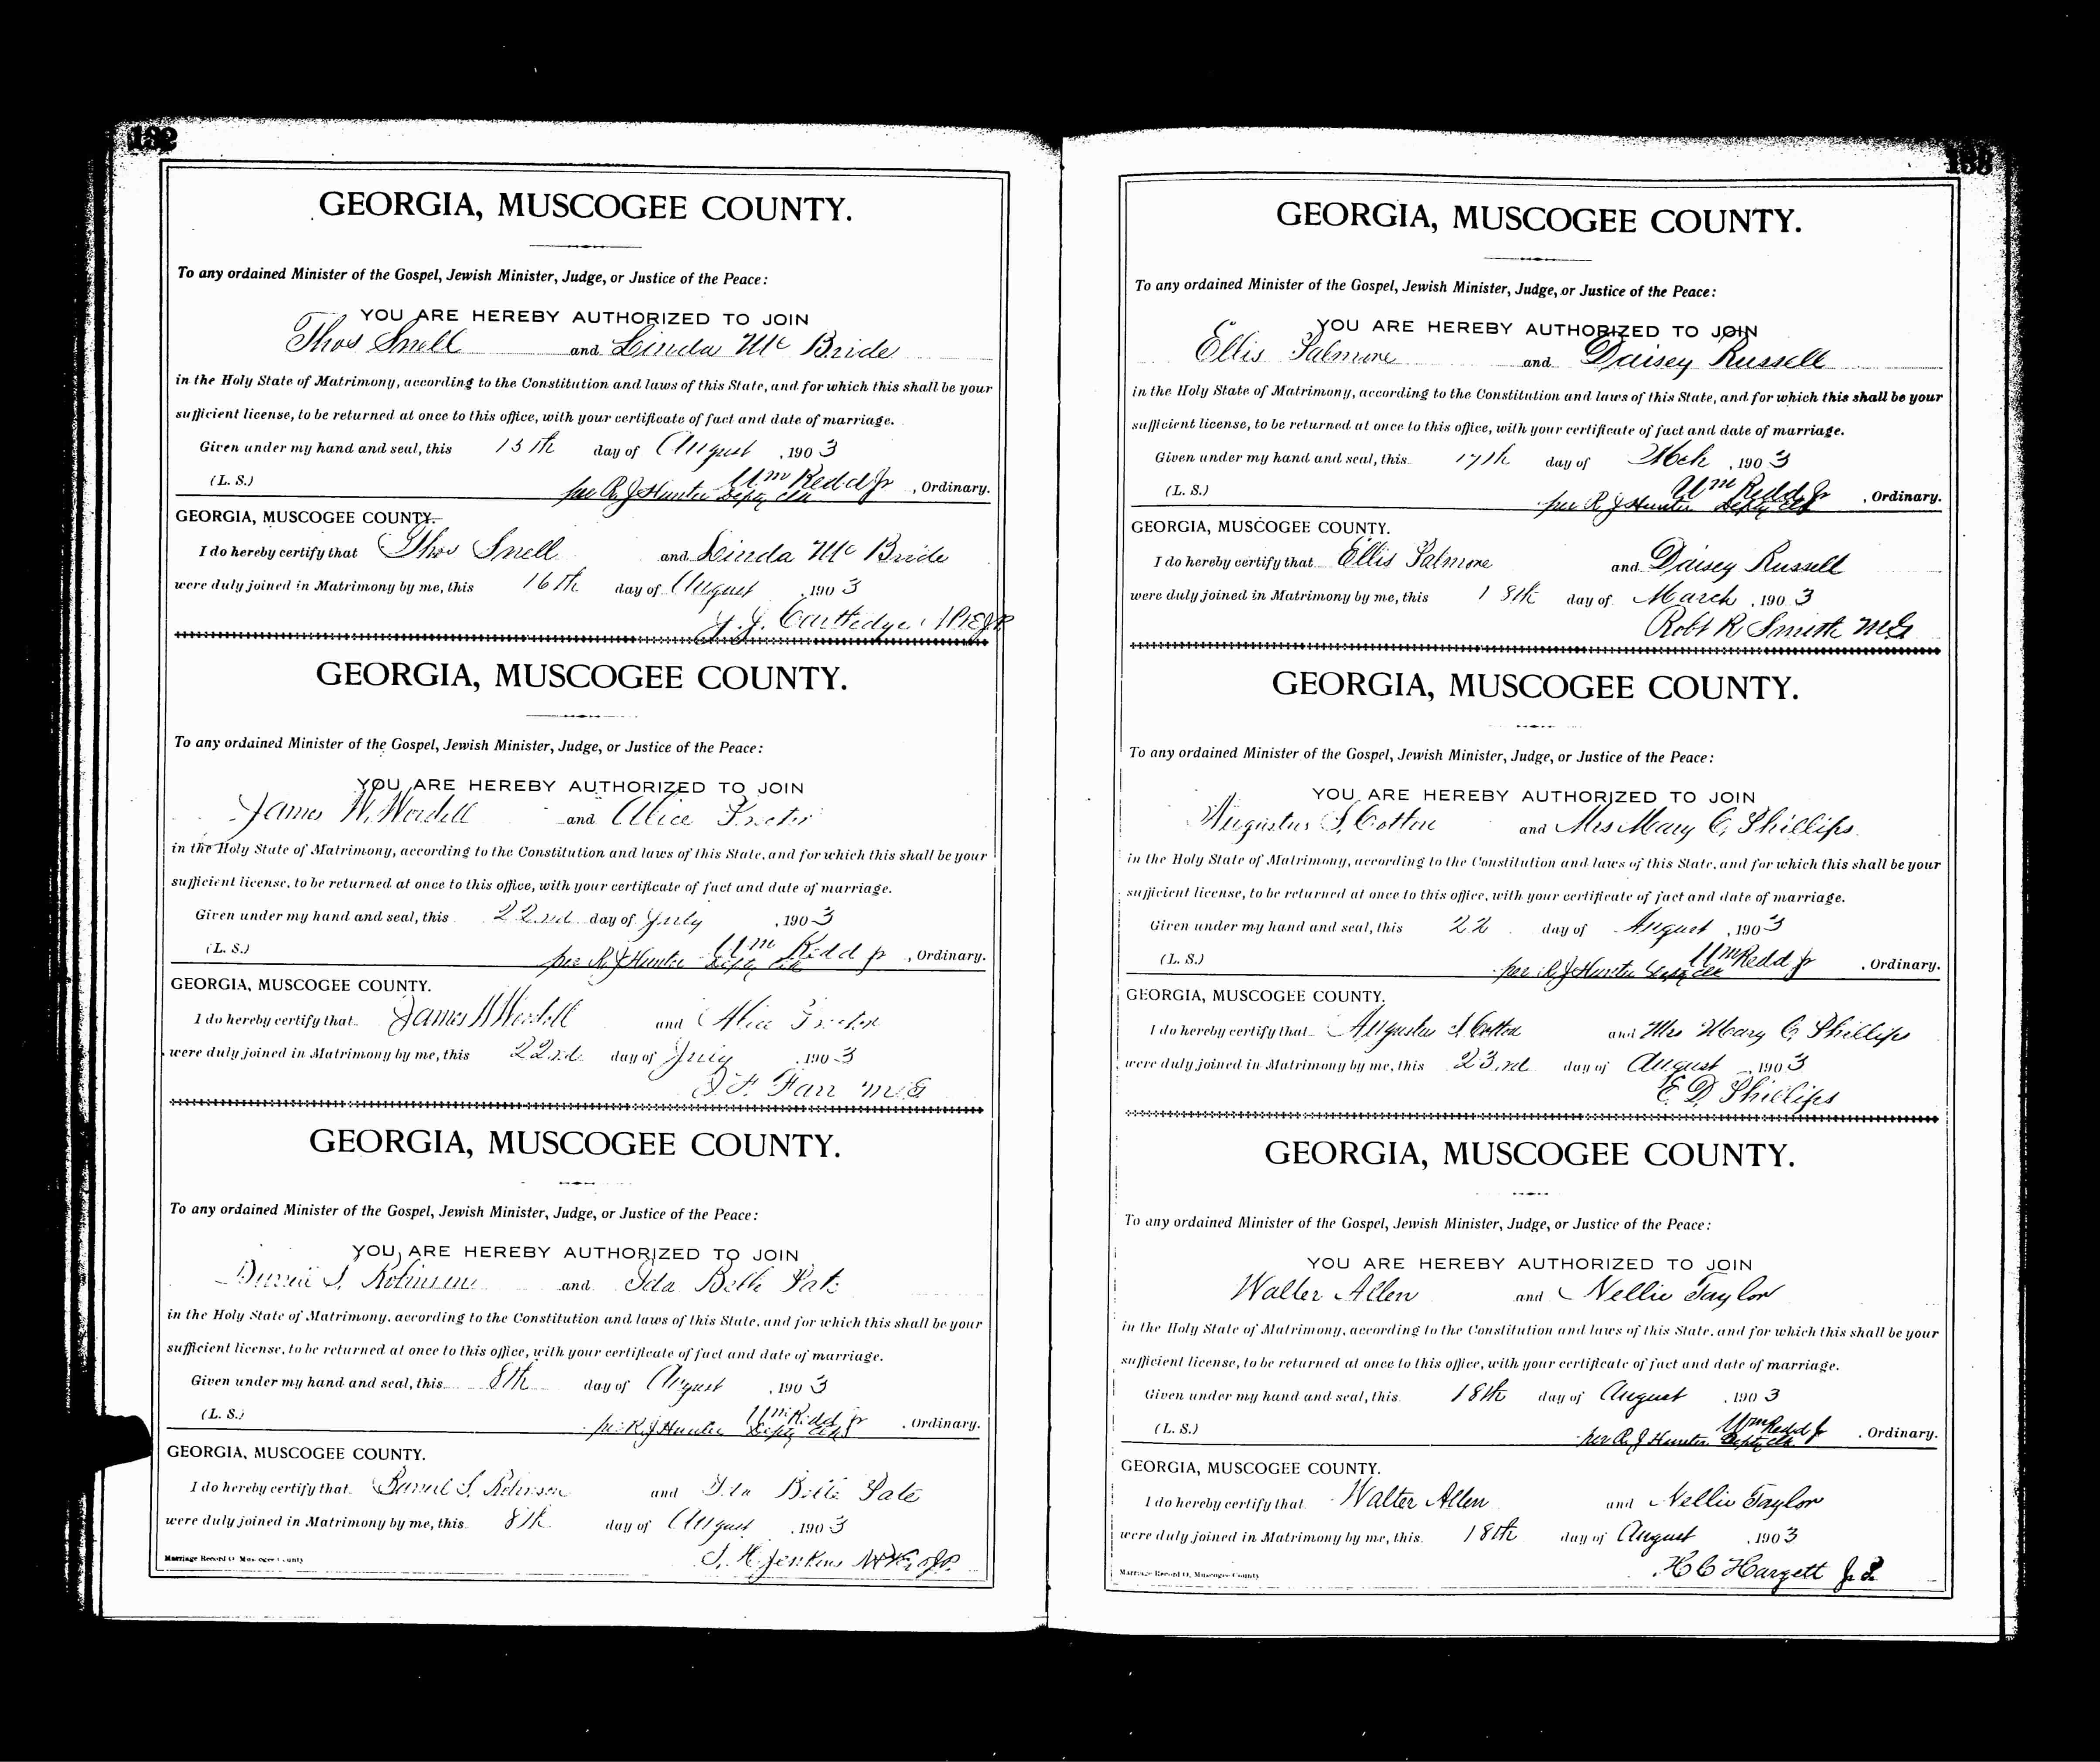 192
GEORGIA, MUSCOGEE COUNTY.
To any ordained Minister of the Gospel, Jewish Minister, Judge, or Justice of the Peace:
YOU ARE HEREBY AUTHORIZED TO JOIN
Thos Snell and Linda Mc Bride
in the Holy State of Matrimony, according to the Constitution and laws of this State, and for which this shall be your
sufficient license, to be returned at once to this office, with your certificate of fact and date of marriage.
Given under my hand and seal, this 15th day of August , 1903
(L. S.) Wm Redd Jr , Ordinary.
per R J Hunter Depty Clk
GEORGIA, MUSCOGEE COUNTY.
I do hereby certify that Thos Snell and Linda Mc Bride
were duly joined in Matrimony by me, this 16th day of August , 1903
Cartledge
GEORGIA, MUSCOGEE COUNTY.
To any ordained Minister of the Gospel, Jewish Minister, Judge, or Justice of the Peace:
YOU ARE HEREBY AUTHORIZED TO JOIN
James W. Wordell and Alice
in the Holy State of Matrimony, according to the Constitution and laws of this State, and for which this shall be your
sufficient license, to be returned at once to this office, with your certificate of fact and date of marriage.
Given under my hand and seal, this 22nd day of July , 1903
(L. S.) Wm Redd Jr , Ordinary.
per R J Hunter Depty Clk
GEORGIA, MUSCOGEE COUNTY.
I do hereby certify that James W Wordell and Alice
were duly joined in Matrimony by me, this 22nd day of July , 1903
Farr M.G
GEORGIA, MUSCOGEE COUNTY.
To any ordained Minister of the Gospel, Jewish Minister, Judge, or Justice of the Peace:
YOU ARE HEREBY AUTHORIZED TO JOIN
S. Robinson and Ida Belle Pate
in the Holy State of Matrimony, according to the Constitution and laws of this State, and for which this shall be your
sufficient license, to be returned at once to this office, with your certificate of fact and date of marriage.
Given under my hand and seal, this 8th day of August , 1903
(L. S.) Wm Redd Jr , Ordinary.
per R J Hunter Depty Clk
GEORGIA, MUSCOGEE COUNTY.
I do hereby certify that S. Robinson and Ida Belle Pate
were duly joined in Matrimony by me, this 8th day of August , 1903
Marriage Record O, Muscogee County
Jenkins
GEORGIA, MUSCOGEE COUNTY.
To any ordained Minister of the Gospel, Jewish Minister, Judge, or Justice of the Peace:
YOU ARE HEREBY AUTHORIZED TO JOIN
Ellis Salmore and Daisey Russell
in the Holy State of Matrimony, according to the Constitution and laws of this State, and for which this shall be your
sufficient license, to be returned at once to this office, with your certificate of fact and date of marriage.
Given under my hand and seal, this 17th day of Mch , 1903
(L. S.) Wm Redd Jr , Ordinary.
per R J Hunter Depty Clk
GEORGIA, MUSCOGEE COUNTY.
I do hereby certify that Ellis Salmore and Daisey Russell
were duly joined in Matrimony by me, this 18th day of March , 1903
Robt R Smith MG
GEORGIA, MUSCOGEE COUNTY.
To any ordained Minister of the Gospel, Jewish Minister, Judge, or Justice of the Peace:
YOU ARE HEREBY AUTHORIZED TO JOIN
Augustus S. Cotton and Mrs Mary C. Phillips
in the Holy State of Matrimony, according to the Constitution and laws of this State, and for which this shall be your
sufficient license, to be returned at once to this office, with your certificate of fact and date of marriage.
Given under my hand and seal, this 22 day of August , 1903
(L. S.) Wm Redd Jr , Ordinary.
per R J Hunter Depty Clk
GEORGIA, MUSCOGEE COUNTY.
I do hereby certify that Augustus S Cotton and Mrs Mary C. Phillips
were duly joined in Matrimony by me, this 23rd day of August , 1903
E. D. Phillips
GEORGIA, MUSCOGEE COUNTY.
To any ordained Minister of the Gospel, Jewish Minister, Judge, or Justice of the Peace:
YOU ARE HEREBY AUTHORIZED TO JOIN
Walter Allen and Nellie Taylor
in the Holy State of Matrimony, according to the Constitution and laws of this State, and for which this shall be your
sufficient license, to be returned at once to this office, with your certificate of fact and date of marriage.
Given under my hand and seal, this 18th day of August , 1903
(L. S.) Wm Redd Jr , Ordinary.
per R J Hunter Depty Clk
GEORGIA, MUSCOGEE COUNTY.
I do hereby certify that Walter Allen and Nellie Taylor
were duly joined in Matrimony by me, this 18th day of August , 1903
Marriage Record O, Muscogee County
H C Hargett